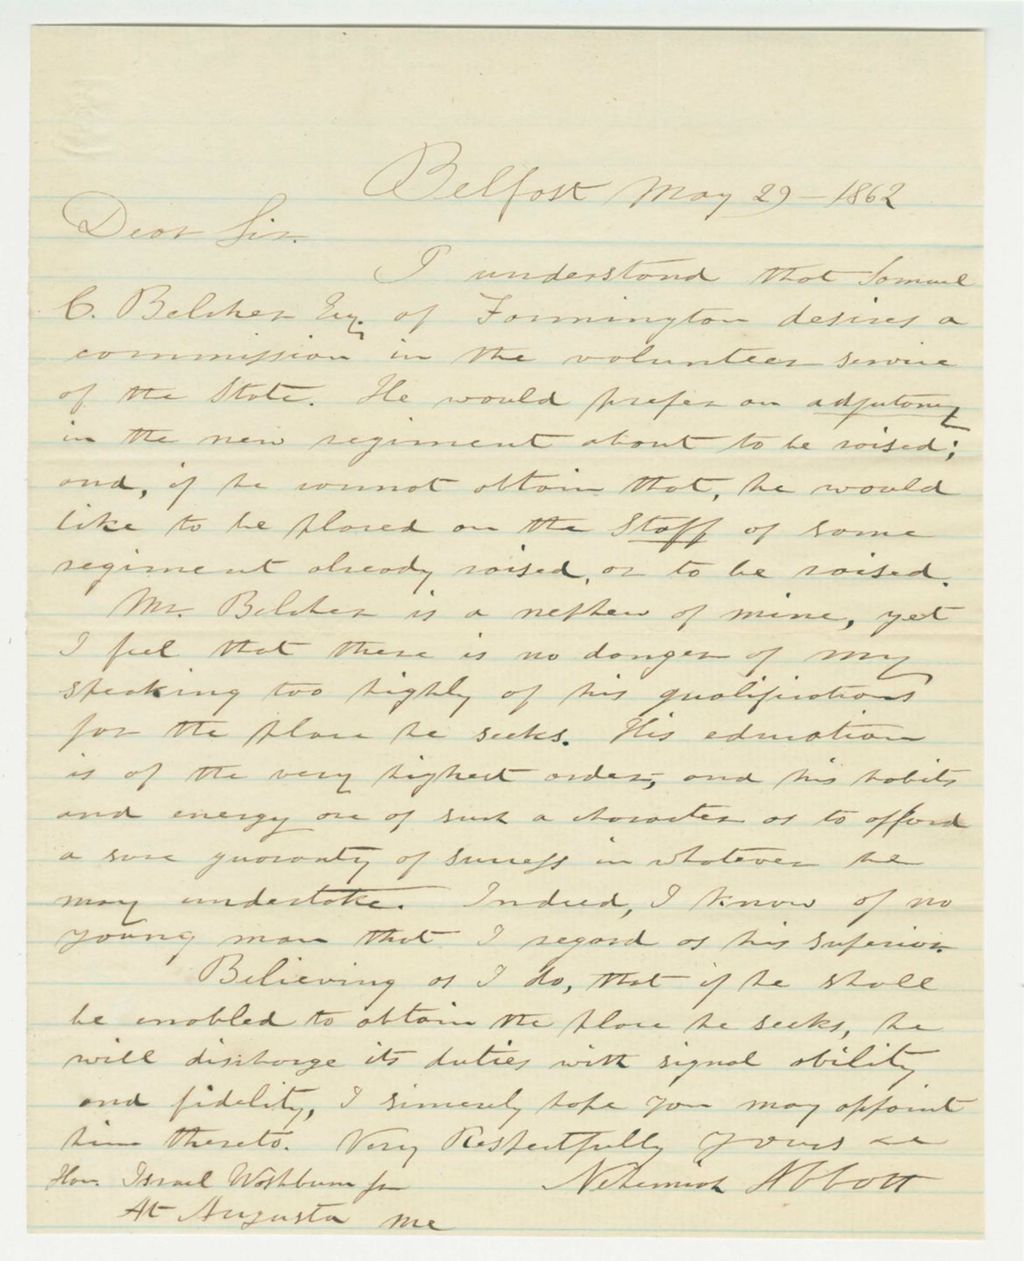 Belfast May 29 - 1862
Dear Sir.
I understand that Samuel
C. Belcher Esq. of Farmington desires a
commission in the volunteer service
of the State. He would prefer an adjutancy
in the new regiment about to be raised;
and, if he cannot obtain that, he would
like to be placed on the Staff of some
regiment already raised, or to be raised.
Mr. Belcher is a nephew of mine, yet
I feel that there is no danger of my
speaking too highly of his qualifications
for the place he seeks. His education
is of the very highest order, and his habits
and energy are of such a character as to afford
a sure guaranty of success in whatever he
may undertake. Indeed, I know of no
young man that I regard as his superior.
Believing as I do, that if he shall
be enabled to obtain the place he seeks, he
will discharge its duties with signal ability
and fidelity, I sincerely hope you may appoint
him thereto. Very Respectfully yours &c
Hon. Israel Washburn Jr Nehemiah Abbott
At Augusta Me